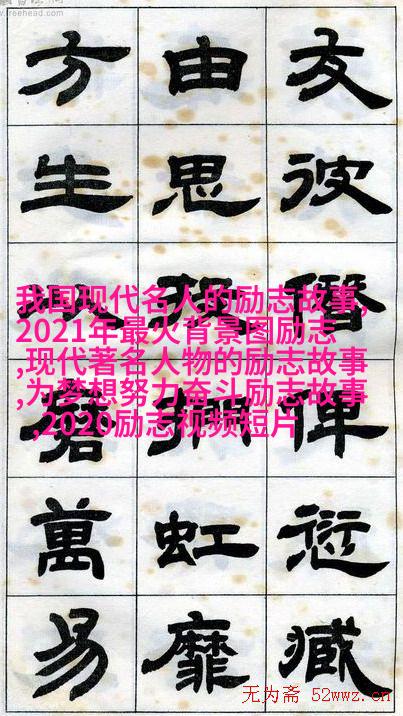 freehead.com
方 由 友
生 思 彼
僭
我国现代名人的励志故事,
2021年最火背景图励志
,现代著名人物的励志故事
,为梦想努力奋斗励志故事
,2020励志视频短片
磨 俾
萬 虹 愆
易 靡 臧
无为斋 52wwz.cn